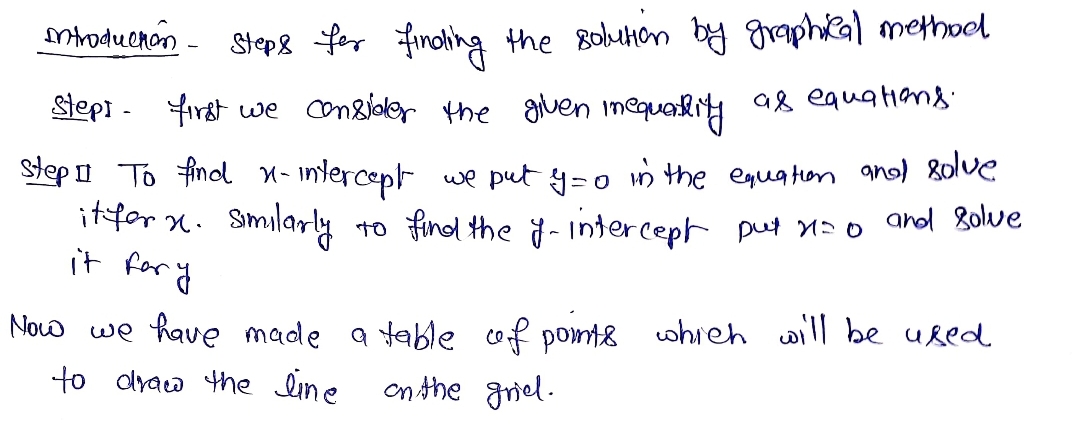 Introduction - Steps for finding the solution by graphical method
Step I - first we consider the given inequality as equations.
Step II To find x-intercept we put y=0 in the equation and solve
it for x. Similarly to find the y-intercept put x=0 and solve
it for y
Now we have made a table of points which will be used
to draw the line on the grid.